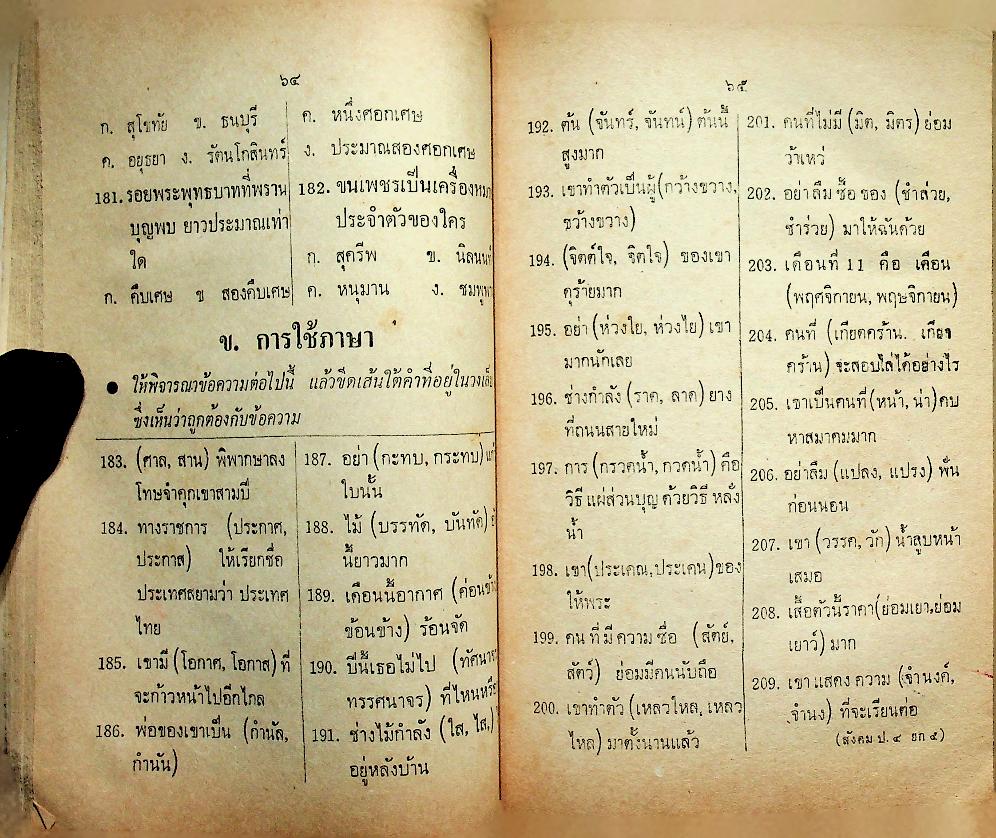 ๖๔
ก. สุโขทัย ข. ธนบุรี
ค. อยุธยา ง. รัตนโกสินทร์
181. รอยพระพุทธบาทที่พราน
บุญพบ ยาวประมาณเท่า
ใด
ก. คืบเศษ ข สองคืบเศษ
ค. หนึ่งศอกเศษ
ง. ประมาณสองศอกเศษ
182. ขนเพชรเป็นเครื่องหมาย
ประจำตัวของใคร
ก. สุครีพ ข. นิลนนท์
ค. หนุมาน ง. ชมพูพาน
ข. การใช้ภาษา
● ให้พิจารณาข้อความต่อไปนี้ แล้วขีดเส้นใต้คำที่อยู่ในวงเล็บ
ซึ่งเห็นว่าถูกต้องกับข้อความ
183. (ศาล, สาน) พิพากษาลง
โทษจำคุกเขาสามปี
184. ทางราชการ (ประกาศ,
ประกาส) ให้เรียกชื่อ
ประเทศสยามว่า ประเทศ
ไทย
185. เขามี (โอกาศ, โอกาส) ที่
จะก้าวหน้าไปอีกไกล
186. พ่อของเขาเป็น (กำนัล,
กำนัน)
187. อย่า (กะทบ, กระทบ)
ใบนั้น
188. ไม้ (บรรทัด, บันทัด)
นี้ยาวมาก
189. เดือนนี้อากาศ (ค่อนข้าง
ข้อนข้าง) ร้อนจัด
190. ปีนี้เธอไม่ไป (ทัศนาจร
ทรรศนาจร) ที่ไหนหรือ
191. ช่างไม้กำลัง (ใส, ไส,)
อยู่หลังบ้าน
๖๕
192. ต้น (จันทร์, จันทน์) ต้นนี้
สูงมาก
193. เขาทำตัวเป็นผู้(กว้างขวาง,
ขว้างขวาง)
194. (จิตต์ใจ, จิตใจ) ของเขา
ดุร้ายมาก
195. อย่า (ห่วงใย, ห่วงไย) เขา
มากนักเลย
196. ช่างกำลัง (ราด, ลาด) ยาง
ที่ถนนสายใหม่
197. การ (กรวดน้ำ, กวดน้ำ) คือ
วิธี แผ่ส่วนบุญ ด้วยวิธี หลั่ง
น้ำ
198. เขา(ประเคณ,ประเคน)ของ
ให้พระ
199. คน ที่ มี ความ ซื่อ (สัตย์,
สัตว์) ย่อมมีคนนับถือ
200. เขาทำตัว (เหลวไหล, เหลว
ไหล) มาตั้งนานแล้ว
201. คนที่ไม่มี (มิต, มิตร) ย่อม
ว้าเหว่
202. อย่าลืม ซื้อ ของ (ชำล่วย,
ชำร่วย) มาให้ฉันด้วย
203. เดือนที่ 11 คือ เดือน
(พฤศจิกายน, พฤษจิกายน)
204. คนที่ (เกียดคร้าน. เกียจ
คร้าน) จะสอบไล่ได้อย่างไร
205. เขาเป็นคนที่(หน้า, น่า)คบ
หาสมาคมมาก
206. อย่าลืม (แปลง, แปรง) ฟัน
ก่อนนอน
207. เขา (วรรค, วัก) น้ำลูบหน้า
เสมอ
208. เสื้อตัวนี้ราคา(ย่อมเยา,ย่อม
เยาว์) มาก
209. เขา แสดง ความ (จำนงค์,
จำนง) ที่จะเรียนต่อ
(สังคม ป. ๔ ยก ๕)